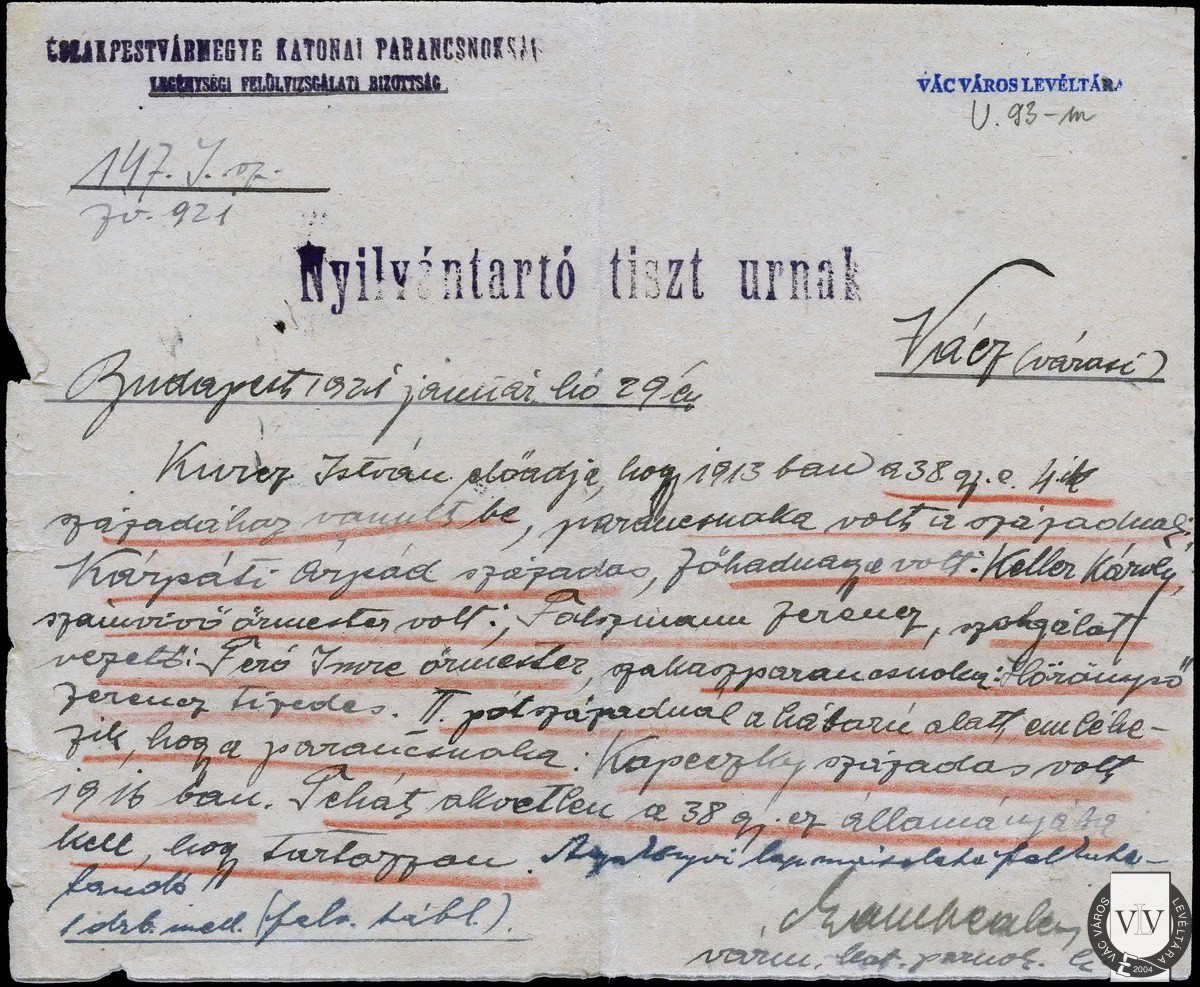 ÉSZAKPESTVÁRMEGYE KATONAI PARANCSNOKSÁG
LEGÉNYSÉGI FELÜLVIZSGÁLATI BIZOTTSÁG.
VÁC VÁROS LEVÉLTÁRA
V. 93-m
147. I. sz.
fv. 921
Nyilvántartó tiszt urnak
Vácz (városi)
Budapest, 1921 január hó 29 én
Kurcz István előadja, hogy 1913 ban a 38 gy. e. 4. ik
századához vonult be, parancsnoka volt a századnál:
Kárpáti Árpád százados, főhadnagya volt: Keller Károly,
számvivő őrmester volt:, Folszmann Ferencz, szolgálat
vezető: Feró Imre őrmester, szakaszparancsnoka:
Ferencz tizedes. II. pótszázadnál a háború alatt, emléke-
zik, hogy a parancsnoka: Kapeczky százados volt
1916 ban. Tehát okvetlen a 38 gy. ez. állományába
kell, hogy tartozzon. lap másolata felkuta-
tandó
1 drb. mell. (felv. tábl.).
várm. kat. parnok. h.
VÁC VÁROS LEVÉLTÁRA
VLV
2004